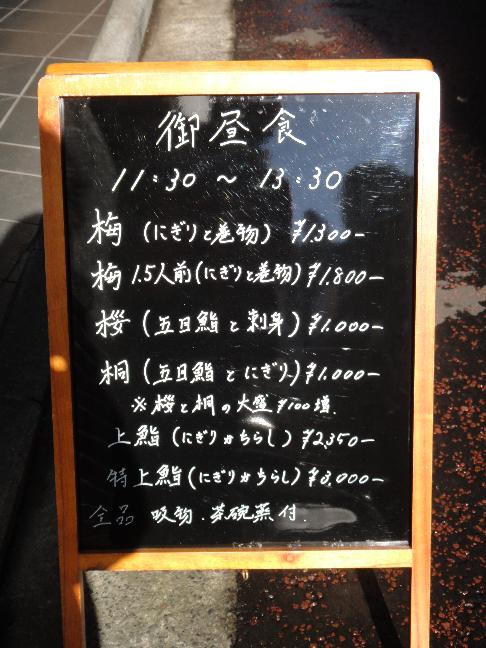 御昼食
11:30 ~ 13:30
梅 (にぎりと巻物) ¥1300-
梅 1.5人前(にぎりと巻物) ¥1.800-
桜 (五目鮨と刺身) ¥1.000-
桐 (五目鮨とにぎり) ¥1.000-
※桜と桐の大盛¥100増.
上鮨 (にぎりかちらし) ¥2,350-
特上鮨 (にぎりかちらし) ¥3,000-
全品 吸物.茶碗蒸付.